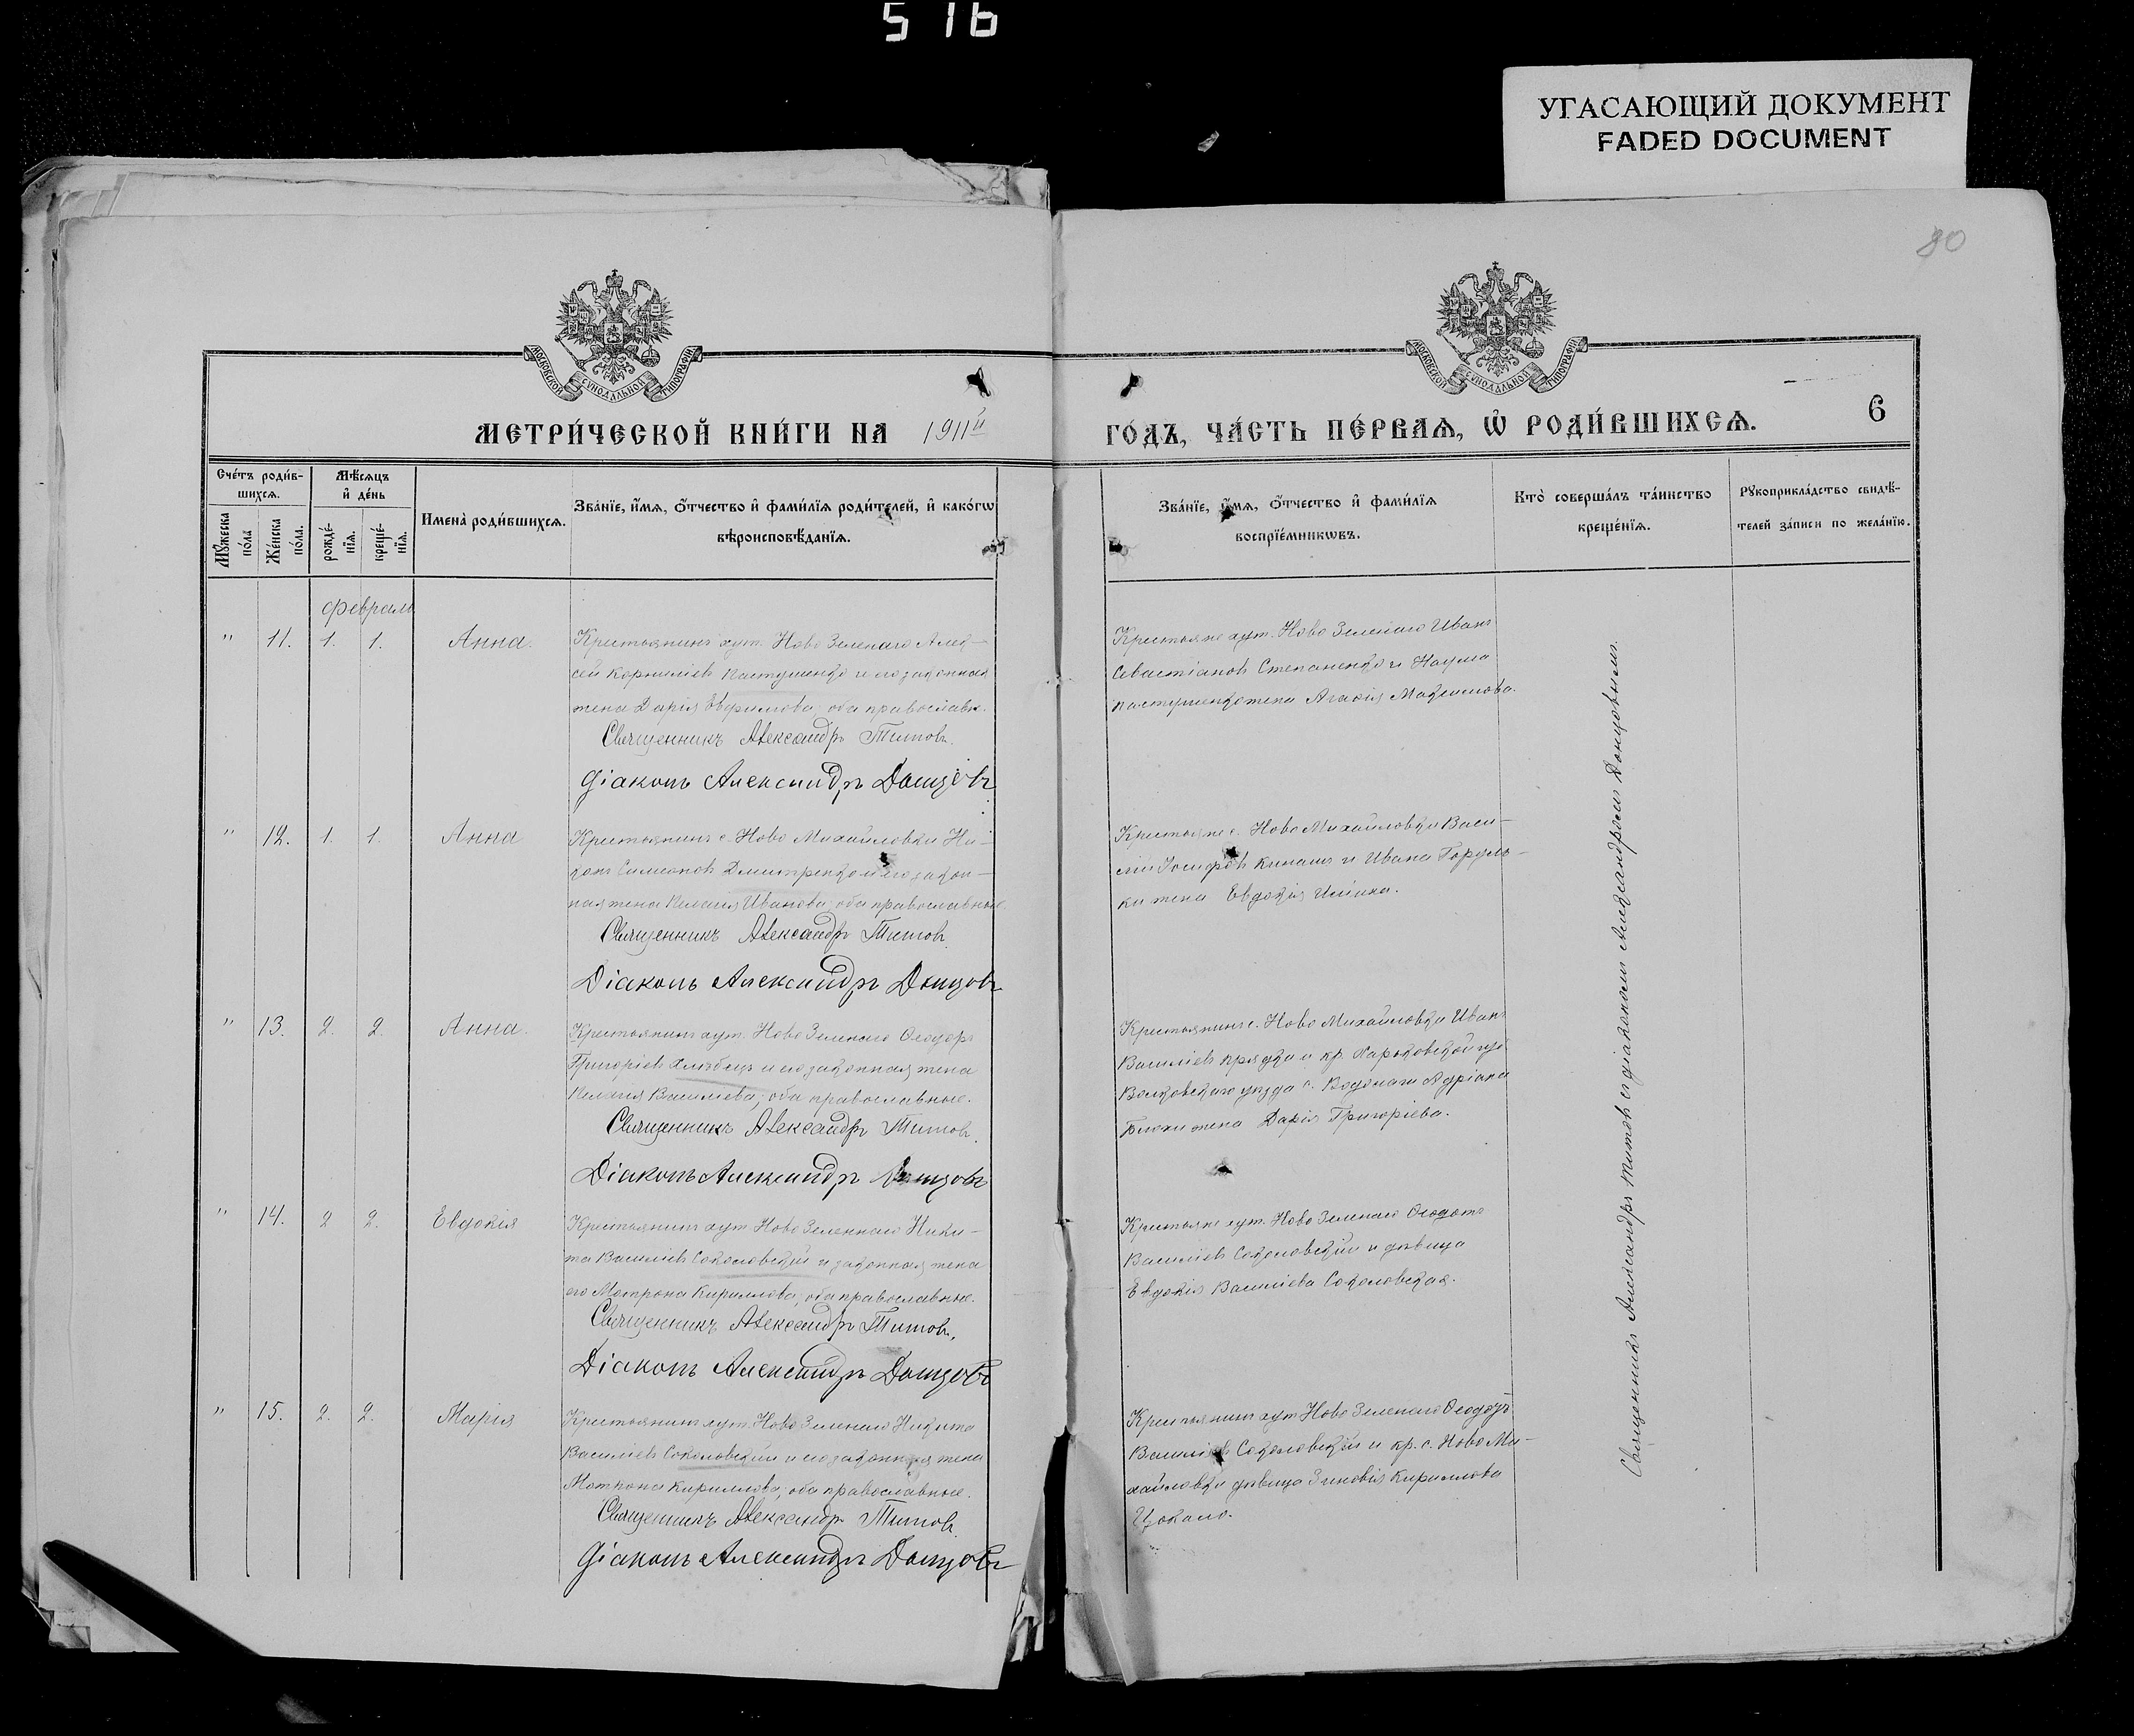 516
УГАСАЮЩИЙ ДОКУМЕНТ
FADED DOCUMENT
80
МОСКОВСКОЙ СУНОДАЛЬНОЙ ТИПОГРАФІИ
МОСКОВСКОЙ СУНОДАЛЬНОЙ ТИПОГРАФІИ
МЕТРИ́ЧЕСКОЙ КНИ́ГИ НА 1911й
ГО́ДЪ, ЧА́СТЬ ПЕ́РВАѦ, Ѡ҆ РОДИ́ВШИХСѦ.
6
Сче́тъ роди́в-
шихсѧ.
Мѣ́сѧцъ
и҆ де́нь
Мꙋ́жеска по́ла
Же́нска по́ла.
рожде́-
нїѧ.
креще́-
нїѧ.
Имена̀ роди́вшихсѧ.
Зва́нїе, и҆́мѧ, ѻ҆́тчество и҆ фами́лїѧ роди́телей, и҆ како́гѡ
вѣроисповѣ́данїѧ.
Зва́нїе, и҆́мѧ, ѻ҆́тчество и҆ фами́лїѧ
воспрїе́мникѡвъ.
Кто̀ соверша́лъ та́инство
креще́нїѧ.
Рꙋкоприкла́дство свидѣ́-
телей за́писи по жела́нїю.
Февраль
" 11. 1. 1. Анна.
Крестьянинъ хут. Ново Зеленаго Алек-
сей Корниліевъ Пастушенко и его законная
жена Дарія Евфимова; оба православн.
Священникъ Александръ Титовъ.
Діаконъ Александръ Донцовъ
Крестьяне хут. Ново Зеленаго Иванъ
Севастіановъ Степаненко и Наума
Пастушенко жена Агафія Максимова.
" 12. 1. 1. Анна
Крестьянинъ с. Ново Михайловки Ни-
конъ Симеоновъ Дмитренко и его закон-
ная жена Пелагія Иванова; оба православные.
Священникъ Александръ Титовъ.
Діаконъ Александръ Донцовъ
Крестьяне с. Ново Михайловки Васи-
лій Іосифовъ и Ивана
жена Евдокія
" 13. 2. 2. Анна.
Крестьянинъ хут. Ново Зеленаго Ѳеодоръ
Григоріевъ Хлѣбецъ и его законная жена
Пелагія Василіева; оба православные.
Священникъ Александръ Титовъ.
Діаконъ Александръ Донцовъ
Крестьянинъ с. Ново Михайловки Иванъ
Василіевъ Прядка и кр. Харьковской губ.
Волковскаго уѣзда с. Адріана
жена Дарія Григоріева.
" 14. 2 2. Евдокія
Крестьянинъ хут Ново Зеленнаго Ники-
та Василіевъ Соколовскій и законная жена
его Матрона Кириллова; оба православные.
Священникъ Александръ Титовъ.
Діаконъ Александръ Донцовъ
Крестьяне хут. Ново Зеленаго
Василіевъ Соколовскій и дѣвица
Евдокія Василіева Соколовская.
" 15. 2. 2. Марія
Крестьянинъ хут. Ново Зеленаго Никита
Василіевъ Соколовскій и его законная жена
Матрона Кириллова; оба православные.
Священникъ Александръ Титовъ.
Діаконъ Александръ Донцовъ
Крестьянинъ хут Ново Зеленаго
Василіевъ Соколовскій и кр. с. Ново Ми-
хайловки дѣвица Зиновія Кириллова
Цокало.
Священникъ Александръ Титовъ съ діакономъ Александромъ Донцовымъ.